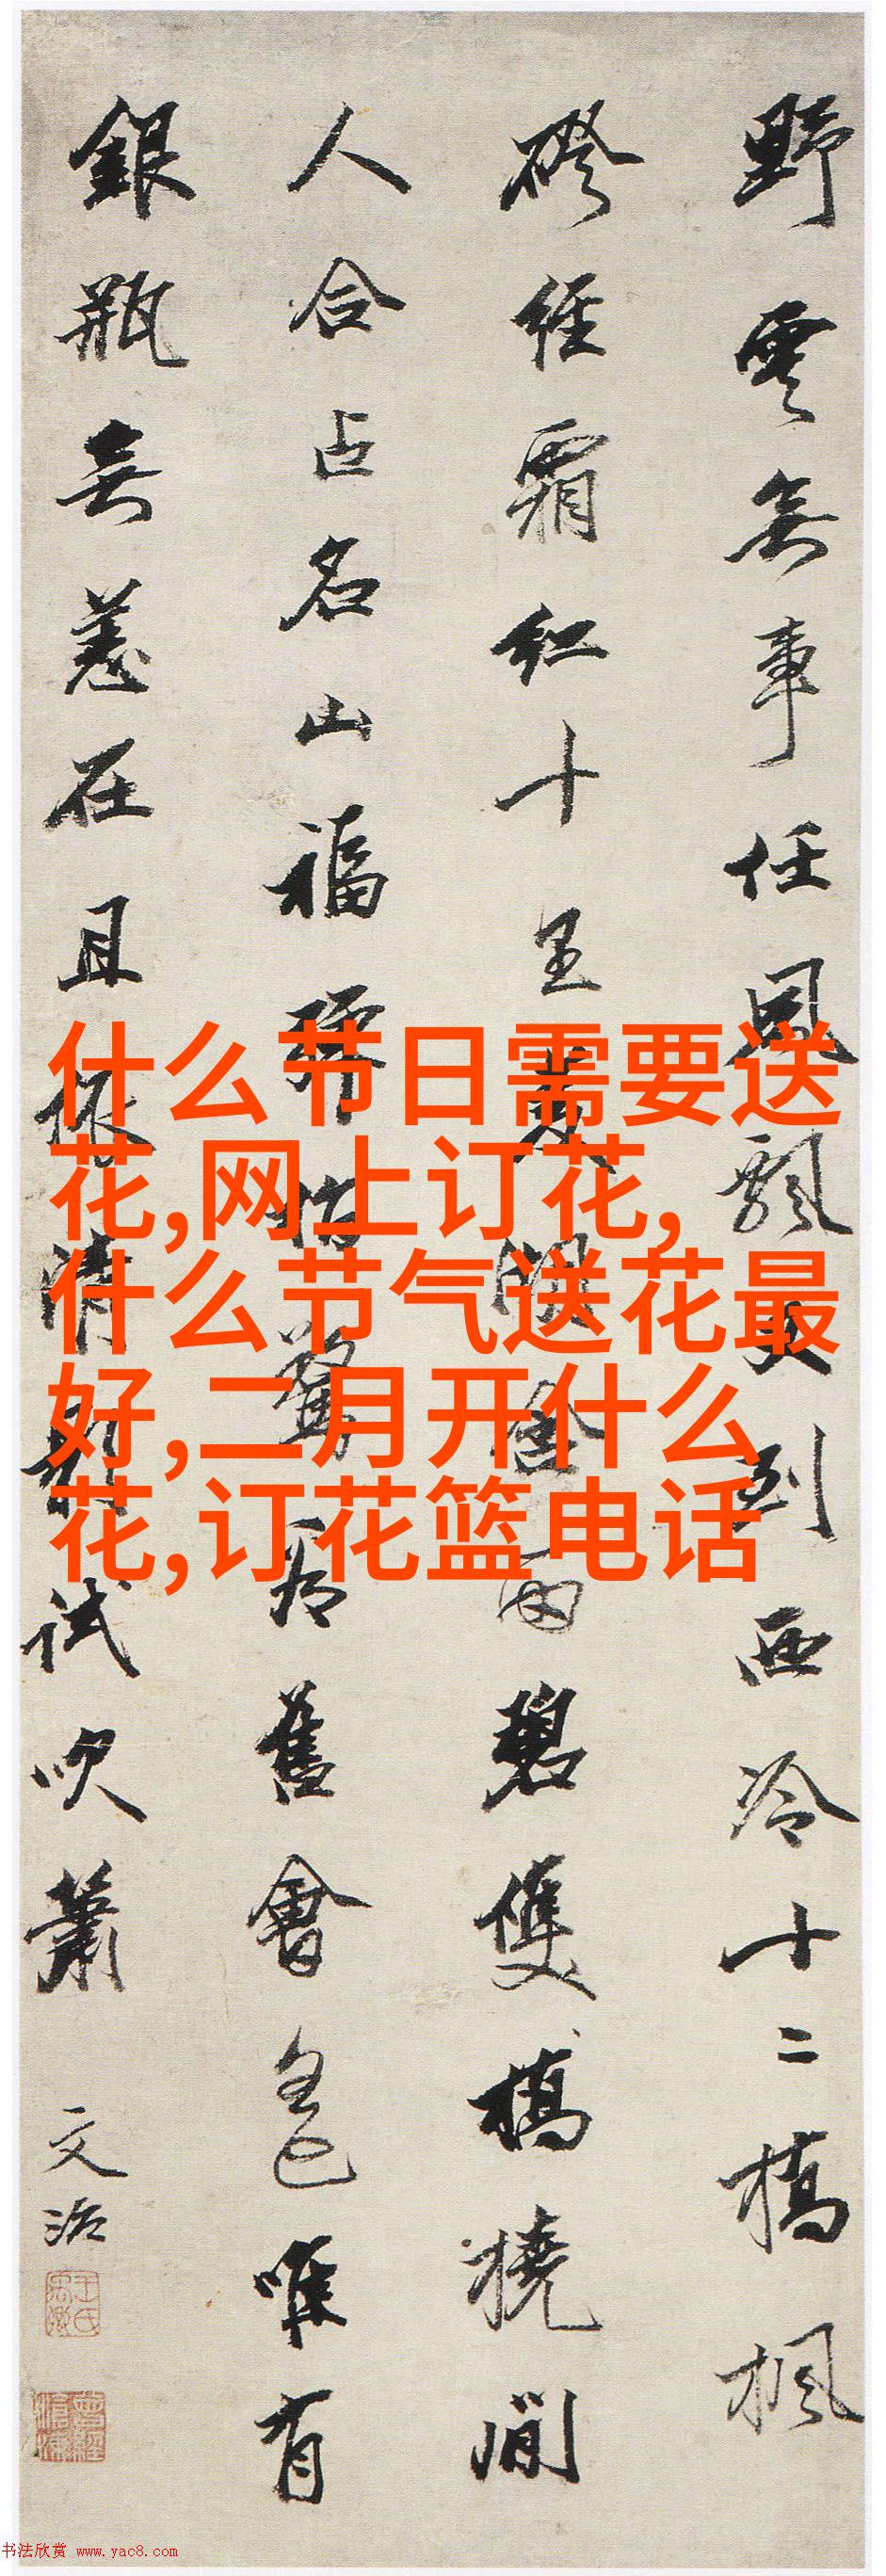 野雲無事任風飄又到西泠十二橋楓
磴經霜紅十里湖含雨碧雙橋橈閒
人合占名山福怕舊會唯有
銀瓶無恙在且依清影試吹簫
文治
什么节日需要送
花,网上订花,
什么节气送花最
好,二月开什么
花,订花篮电话
书法欣赏 www.yac8.com